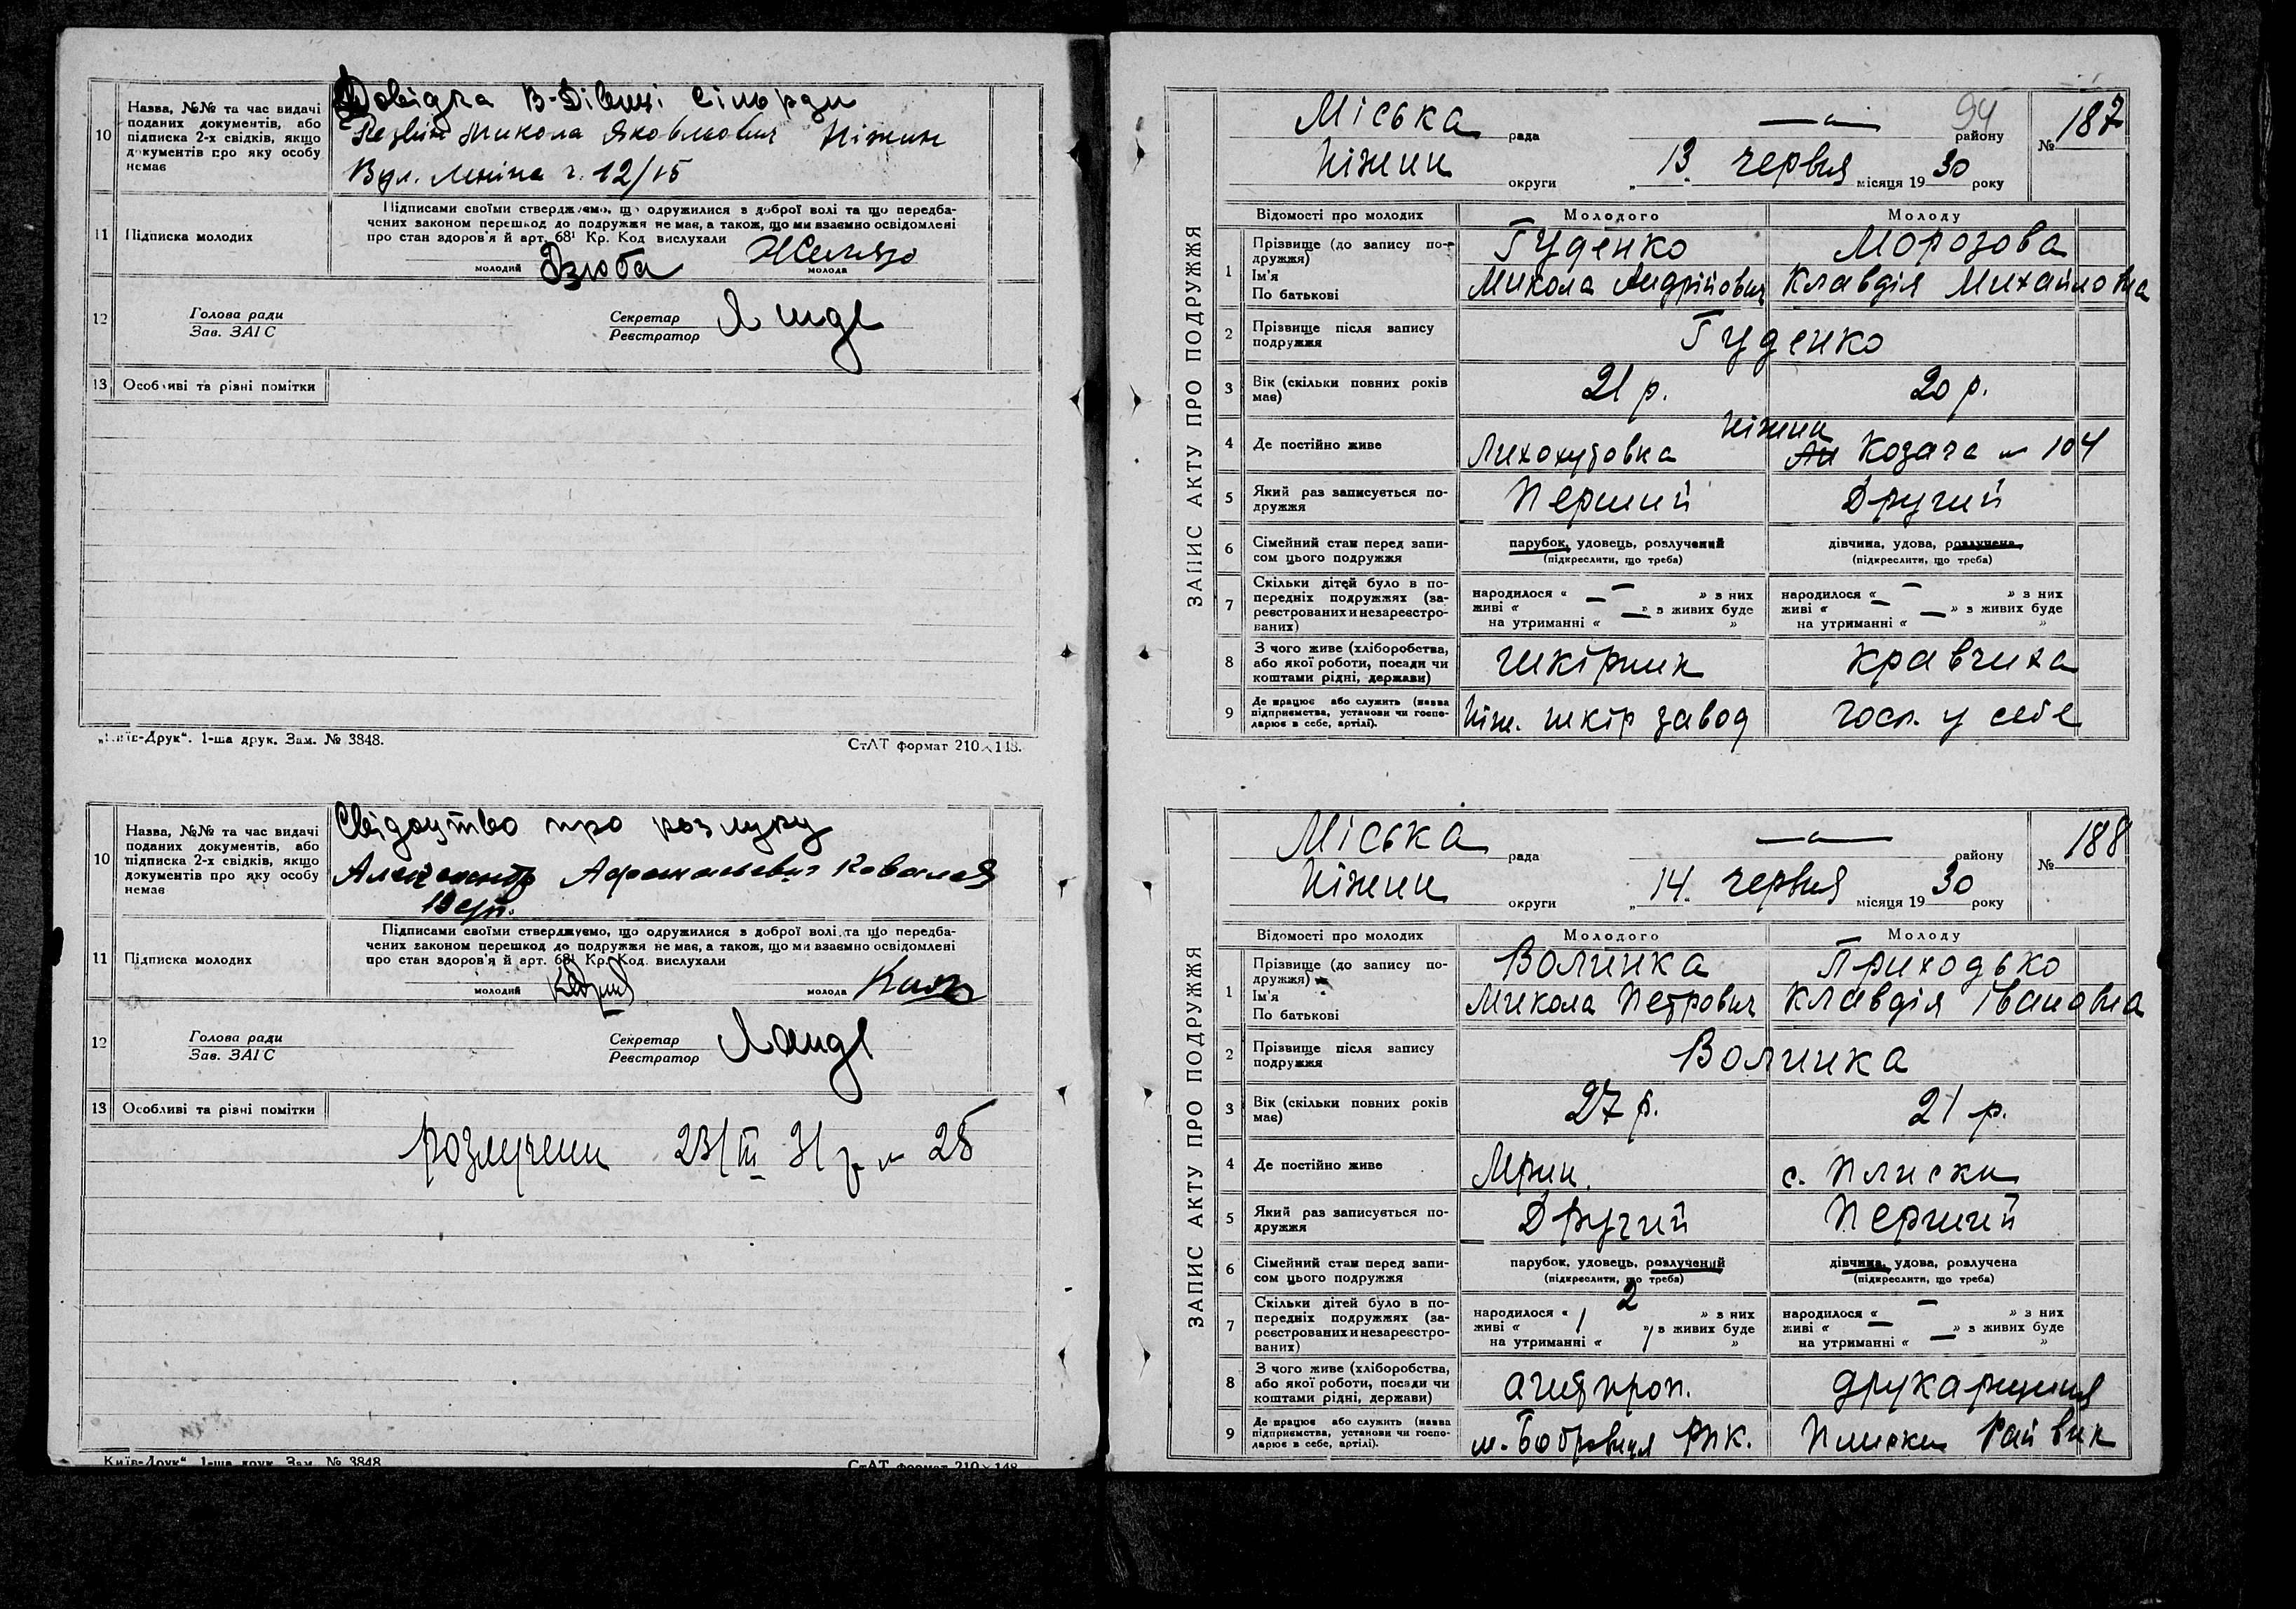 10
Назва, №№ та час видачі
поданих документів, або
підписка 2-х свідків, якщо
документів про яку особу
немає
Довідка В-Дівиці сільради
Микола Яковлевич Ніжин
Вул. Леніна ч. 12/15
11
Підписка молодих
Підписами своїми стверджуємо, що одружилися з доброї волі та що передба-
чених законом перешкод до подружжя немає, а також, що ми взаємно освідомлені
про стан здоров'я й арт. 68¹ Кр. Код вислухали
молодий Дзюба
молода
12
Голова ради
Зав. ЗАГС
Секретар
Реєстратор
13 Особливі та різні помітки
„Київ-Друк“. 1-ша друк. Зам. № 3848.
СтАТ формат 210×148.
10
Назва, №№ та час видачі
поданих документів, або
підписка 2-х свідків, якщо
документів про яку особу
немає
Свідоцтво про розлуку
11
Підписка молодих
Підписами своїми стверджуємо, що одружилися з доброї волі та що передба-
чених законом перешкод до подружжя не має, а також, що ми взаємно освідомлені
про стан здоров'я й арт. 68¹ Кр. Код. вислухали
молодий
молода
12
Голова ради
Зав. ЗАГС
Секретар
Реєстратор
13 Особливі та різні помітки
розлучени 23/III 31 р №
Київ-Друк“ 1-ша друк. Зам. № 3848
СтАТ формат 210×148
94
Міська рада — району
№ 187
Ніжин округи „13“ червня місяця 1930 року
ЗАПИС АКТУ ПРО ПОДРУЖЖЯ
Відомості про молодих
Молодого
Молоду
1
Прізвище (до запису по-
дружжя)
Ім'я
По батькові
Гуденко
Микола Андрійович
Морозова
Клавдія Михайловна
2
Прізвище після запису
подружжя
Гуденко
3
Вік (скільки повних років
має)
21 р.
20 р.
4
Де постійно живе
Ніжин
Козача № 104
5
Який раз записується по-
дружжя
Перший
Другий
6
Сімейний стан перед запи-
сом цього подружжя
парубок, удовець, розлучений
(підкреслити, що треба)
дівчина, удова, розлучена
(підкреслити, що треба)
7
Скільки дітей було в по-
передніх подружжях (за-
реєстрованих и незареєстро-
ваних)
народилося « — » з них
живі « — » з живих буде
на утриманні « — »
народилося « — » з них
живі « — » з живих буде
на утриманні « — »
8
З чого живе (хліборобства,
або якої роботи, посади чи
коштами рідні, держави)
шкірник
кравчиха
9
Де працює або служить (назва
підприємства, установи чи госпо-
дарює в себе, артілі).
Ніж. шкір завод
госп. у себе
Міська рада — району
№ 188
Ніжин округи „14“ червня місяця 1930 року
ЗАПИС АКТУ ПРО ПОДРУЖЖЯ
Відомості про молодих
Молодого
Молоду
1
Прізвище (до запису по-
дружжя)
Ім'я
По батькові
Волинка
Микола Петрович
Приходько
Клавдія Івановна
2
Прізвище після запису
подружжя
Волинка
3
Вік (скільки повних років
має)
27 р.
21 р.
4
Де постійно живе
Мрин.
с. Плиски
5
Який раз записується по-
дружжя
Другий
Перший
6
Сімейний стан перед запи-
сом цього подружжя
парубок, удовець, розлучений
(підкреслити, що треба)
дівчина, удова, розлучена
(підкреслити, що треба)
7
Скільки дітей було в по-
передніх подружжях (за-
реєстрованих и незареєстро-
ваних)
народилося « 2 » з них
живі « 1 » з живих буде
на утриманні « 1 »
народилося « — » з них
живі « — » з живих буде
на утриманні « — »
8
З чого живе (хліборобства,
або якої роботи, посади чи
коштами рідні, держави)
агитпроп.
друкарщиця
9
Де працює або служить (назва
підприємства, установи чи госпо-
дарює в себе, артілі).
м. Бобровиця РПК.
Плиски Райвик